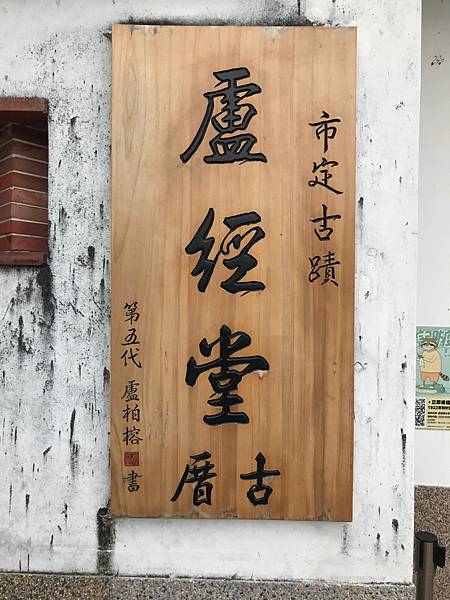 市定古蹟
盧經堂
古厝
第五代 盧柏榕 書